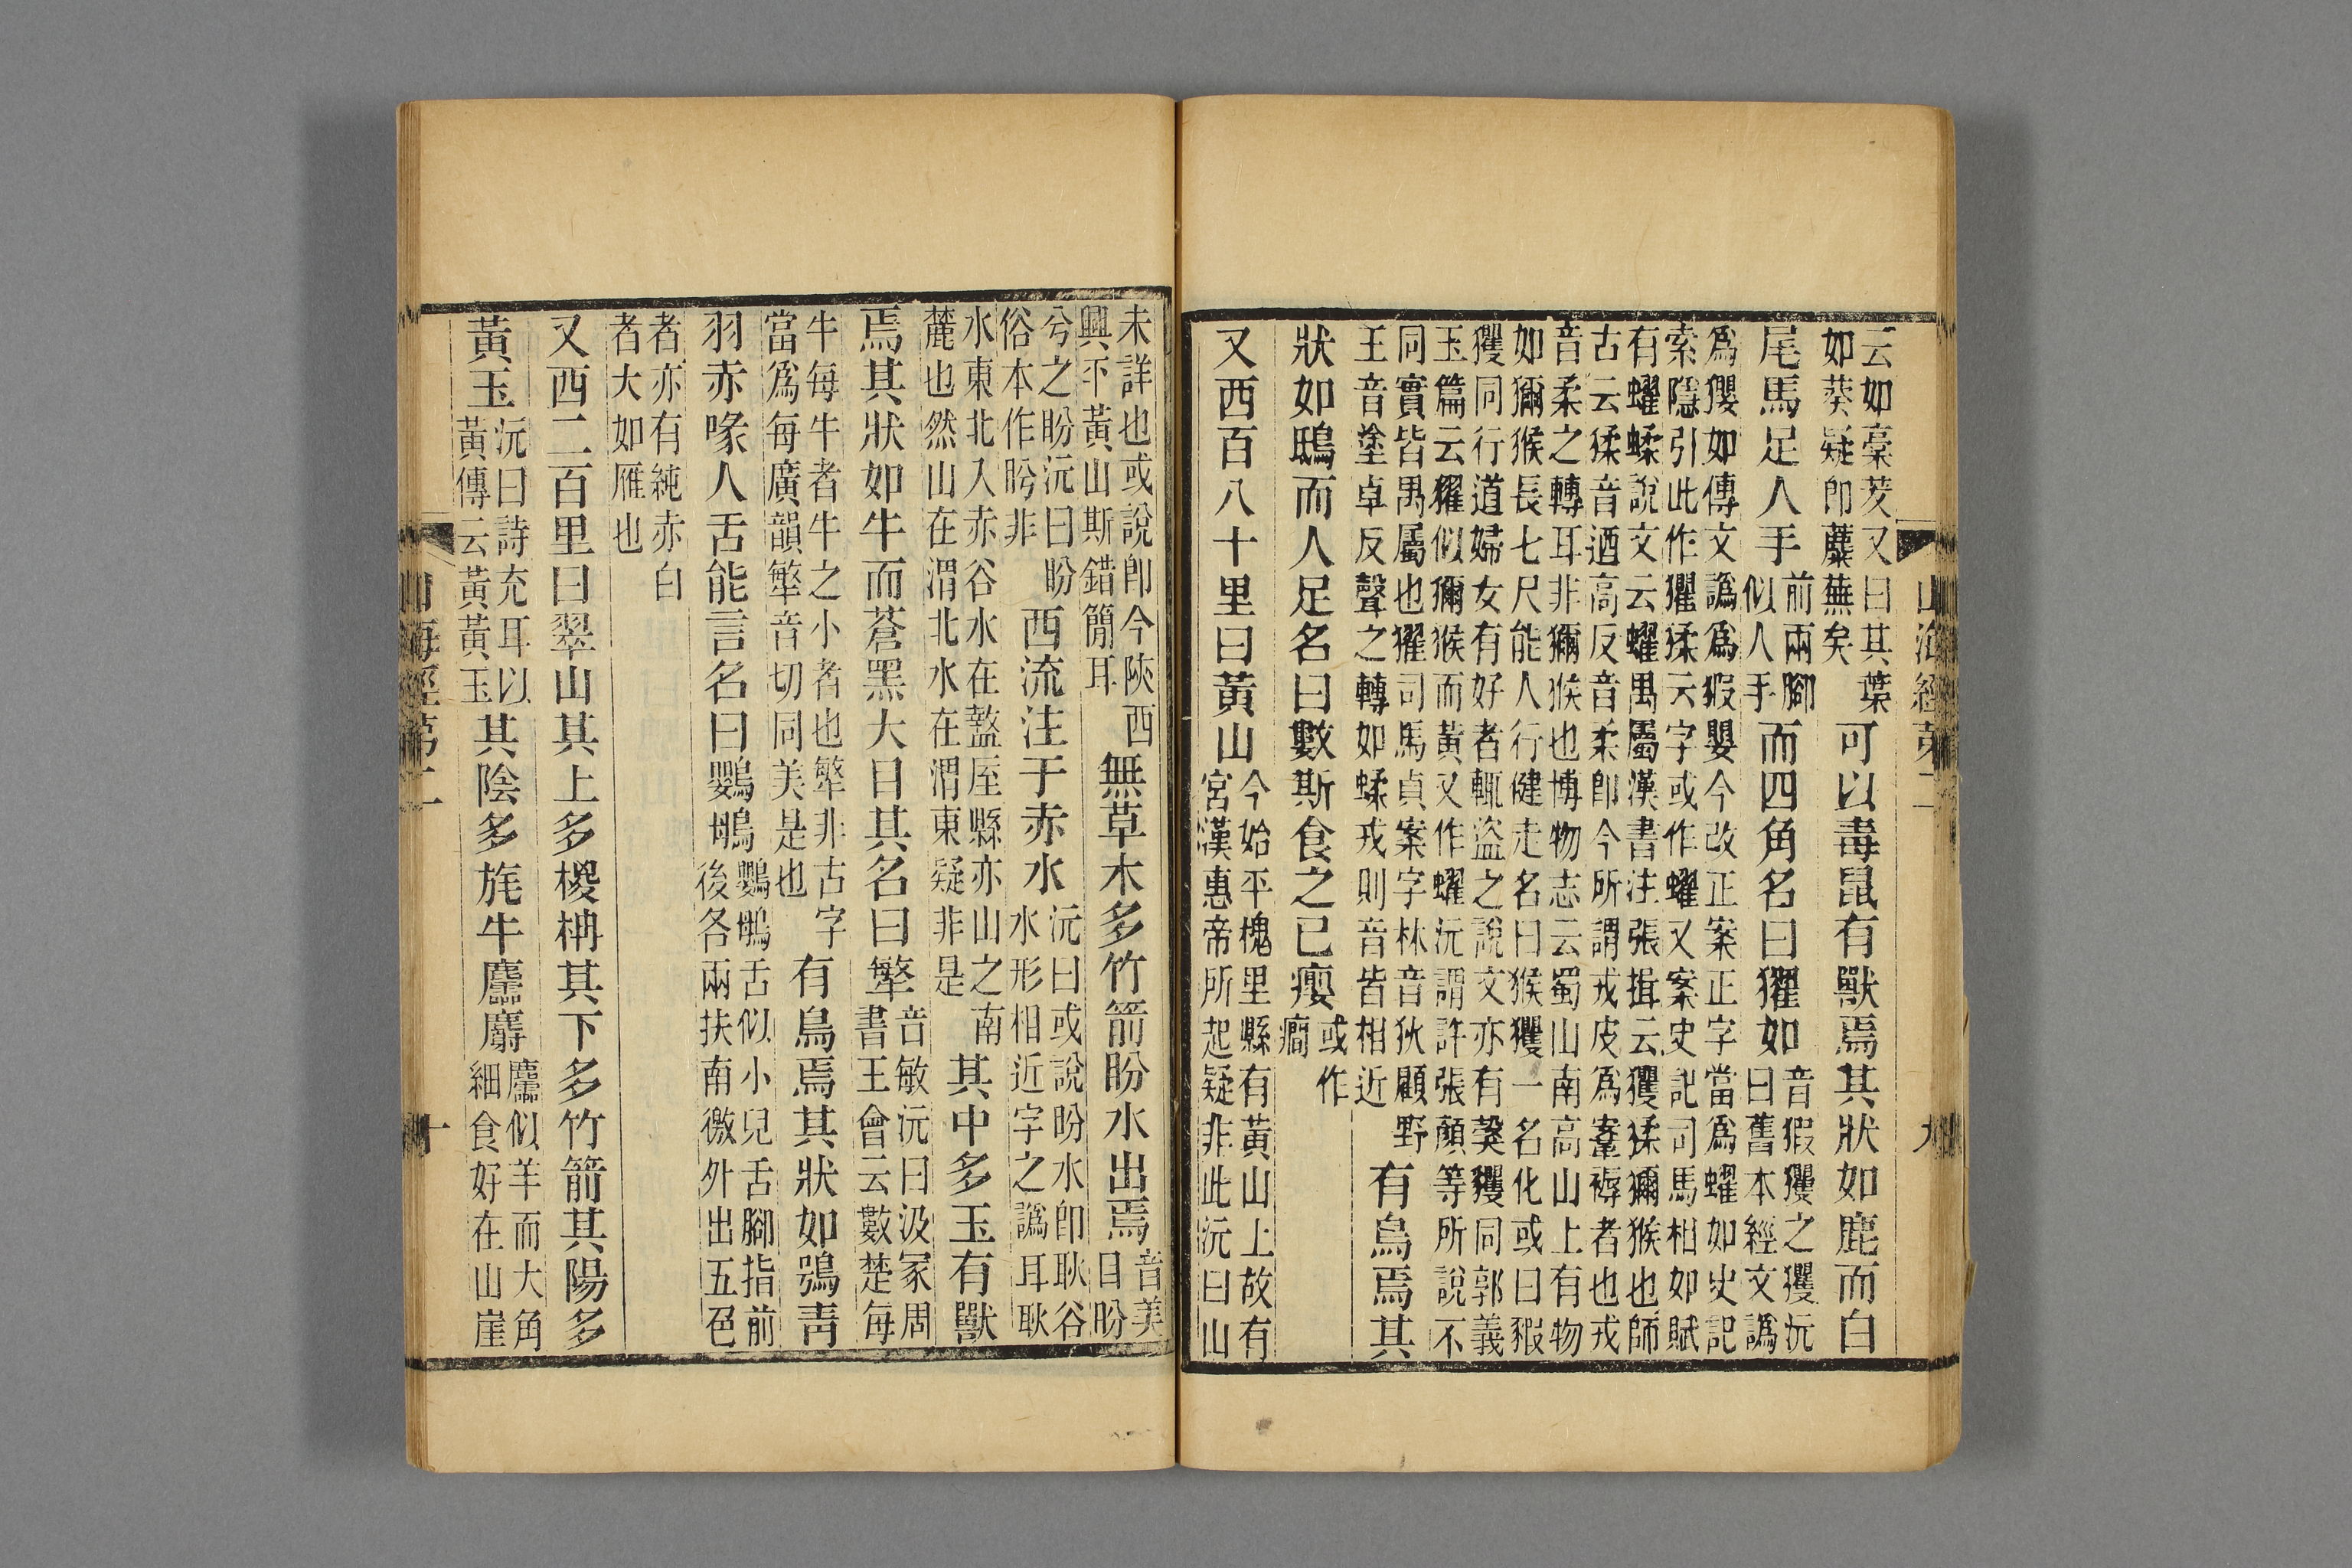 山海經第二
九
云如藁茇又曰其葉
如葵疑卽蘪蕪矣
可以毒鼠有獸焉其狀如鹿而白
尾馬足人手
前兩腳
似人手
而四角名曰玃如
音猳玃之玃沅
曰舊本經文譌
爲玃如傳文譌爲猳嬰今改正案正字當爲蠗如史記
索隱引此作玃猱云字或作蠗又案史記司馬相如賦
有蠗蝚說文云蠗禺屬漢書注張揖云玃猱獼猴也師
古云猱音迺高反音柔卽今所謂戎皮爲鞌褥者也戎
音柔之轉耳非獼猴也博物志云蜀山南高山上有物
如獼猴長七尺能人行健走名曰猴玃一名化或曰猳
玃同行道婦女有好者輒盜之說文亦有玃同郭義
玉篇云玃似獼猴而黃又作蠗沅謂許張顏等所說不
同實皆禺屬也玃司馬貞案字林音狄顧野
王音塗卓反聲之轉如蝚戎則音皆相近
有鳥焉其
狀如鴟而人足名曰數斯食之已癭
或作
癎
又西百八十里曰黃山
今始平槐里縣有黃山上故有
宮漢惠帝所起疑非此沅曰山
未詳也或說卽今陝西
興平黃山斯錯簡耳
無草木多竹箭盼水出焉
音美
目盼
兮之盼沅曰盼
俗本作盻非
西流注于赤水
沅曰或說盼水卽耿谷
水形相近字之譌耳耿
水東北入赤谷水在盩厔縣亦山之南
麓也然山在渭北水在渭東疑非是
其中多玉有獸
焉其狀如牛而蒼黑大目其名曰㹈
音敏沅曰汲冢周
書王會云數楚每
牛每牛者牛之小者也㹈非古字
當爲每廣韻㹈音切同美是也
有鳥焉其狀如鴞青
羽赤喙人舌能言名曰鸚䳇
鸚䳇舌似小兒舌腳指前
後各兩扶南徼外出五色
者亦有純赤白
者大如雁也
又西二百里曰翠山其上多椶枏其下多竹箭其陽多
黃玉
沅曰詩充耳以
黃傳云黃黃玉
其陰多旄牛麢麝
麢似羊而大角
細食好在山崖
山海經第二
十